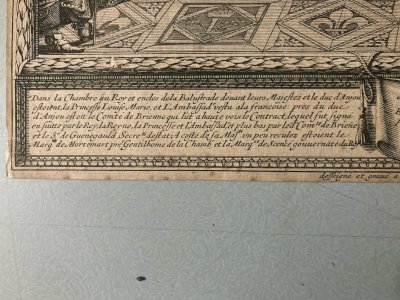 Dans la Chambre du Roy et enclos de la Balustrade devant leurs Majestes et le duc d'Anjou
estoient, la Princesse Louise Marie, et l'Ambassadr vestu a la francoise pres du duc
d'Anjou estoit le Comte de Brienne qui lut a haute voix le Contract, lequel fut signé
en suitte par le Roy, la Reyne, la Princesse et l'Ambassadr et plus bas par led. Comte de Brienne
et le Sr de Guenegauld Secretr destat: A costé de sa Maté un peu recules estoient le
Marqs de Mortemart pre Gentilhome de la Chamb et la Marqse de Senécé gouvernāte du Roy
desseigne et gravé a